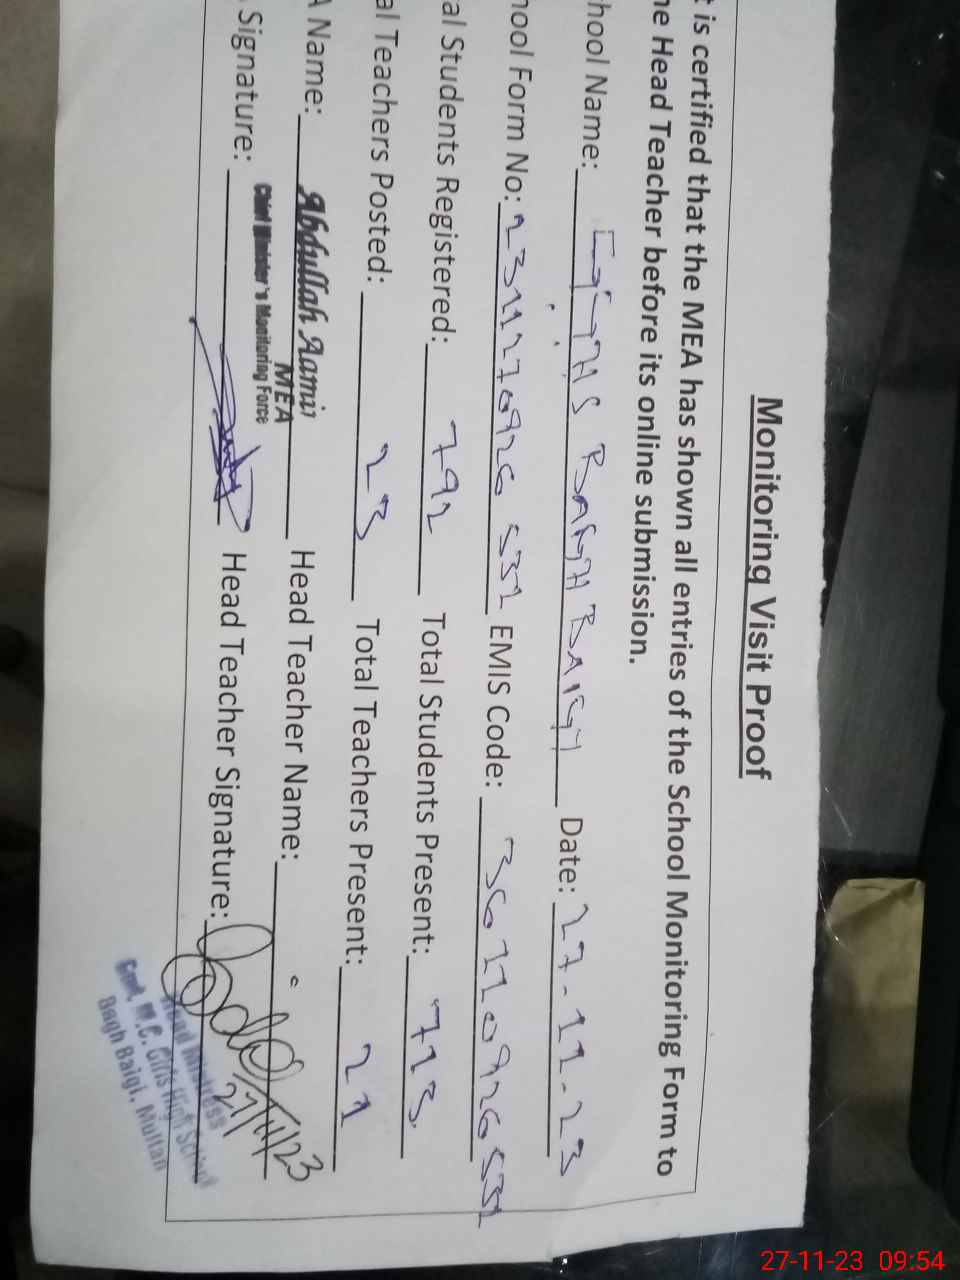 Monitoring Visit Proof
t is certified that the MEA has shown all entries of the School Monitoring Form to
he Head Teacher before its online submission.
hool Name: GGHS BAGH BAIGI Date: 27-11-23
hool Form No: EMIS Code:
al Students Registered: 792 Total Students Present: 713
al Teachers Posted: 23 Total Teachers Present: 21
A Name: Abdullah Aamir Head Teacher Name:
MEA
Chief Minister's Monitoring Force
Signature: Head Teacher Signature:
27/11/23
Head Mistress
Govt. M.C. Girls High School
Bagh Baigi, Multan
27-11-23 09:54